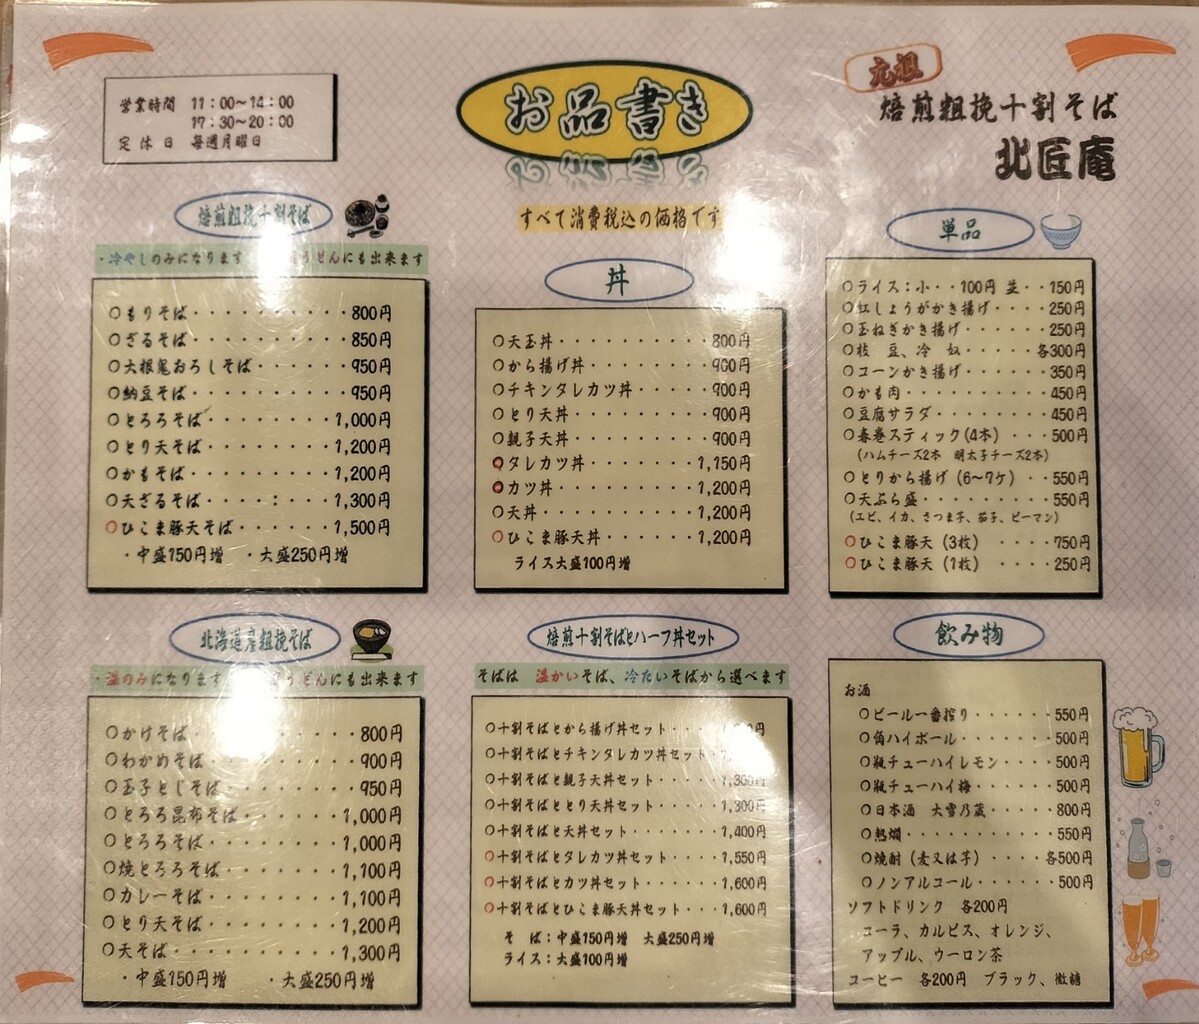 営業時間 11:00~14:00
17:30~20:00
定休日 毎週月曜日
お品書き
すべて消費税込の価格です
元祖
焙煎粗挽十割そば
北匠庵
焙煎粗挽十割そば
・冷やしのみになります うどんにも出来ます
○もりそば・・・・・・・・・・800円
○ざるそば・・・・・・・・・・850円
○大根鬼おろしそば・・・・・・950円
○納豆そば・・・・・・・・・・950円
○とろろそば・・・・・・・・1,000円
○とり天そば・・・・・・・・1,200円
○かもそば・・・・・・・・・1,200円
○天ざるそば・・・・:・・・1,300円
○ひこま豚天そば・・・・・・1,500円
・中盛150円増 ・大盛250円増
丼
○天玉丼・・・・・・・・・・800円
○から揚げ丼・・・・・・・・900円
○チキンタレカツ丼・・・・・900円
○とり天丼・・・・・・・・・900円
○親子天丼・・・・・・・・・900円
○タレカツ丼・・・・・・・1,150円
○カツ丼・・・・・・・・・1,200円
○天丼・・・・・・・・・・1,200円
○ひこま豚天丼・・・・・・1,200円
ライス大盛100円増
単品
○ライス:小・・100円 並・・150円
○紅しょうがかき揚げ・・・・250円
○玉ねぎかき揚げ・・・・・・250円
○枝豆、冷奴・・・・・各300円
○コーンかき揚げ・・・・・・350円
○かも肉・・・・・・・・・・450円
○豆腐サラダ・・・・・・・・450円
○春巻スティック(4本)・・・500円
(ハムチーズ2本 明太子チーズ2本)
○とりから揚げ(6~7ケ)・・550円
○天ぷら盛・・・・・・・・・550円
(エビ、イカ、さつま芋、茄子、ピーマン)
○ひこま豚天(3枚)・・・・750円
○ひこま豚天(1枚)・・・・250円
北海道産粗挽そば
・温のみになります うどんにも出来ます
○かけそば・・・・・・・・・・800円
○わかめそば・・・・・・・・・900円
○玉子とじそば・・・・・・・・950円
○とろろ昆布そば・・・・・・1,000円
○とろろそば・・・・・・・・1,000円
○焼とろろそば・・・・・・・1,100円
○カレーそば・・・・・・・・1,100円
○とり天そば・・・・・・・・1,200円
○天そば・・・・・・・・・・1,300円
・中盛150円増 ・大盛250円増
焙煎十割そばとハーフ丼セット
そばは 温かいそば、冷たいそばから選べます
○十割そばとから揚げ丼セット・・・・円
○十割そばとチキンタレカツ丼セット・
○十割そばと親子天丼セット・・・・1,300円
○十割そばととり天丼セット・・・・1,300円
○十割そばと天丼セット・・・・・・1,400円
○十割そばとタレカツ丼セット・・・・1,550円
○十割そばとカツ丼セット・・・・・1,600円
○十割そばとひこま豚天丼セット・・・1,600円
そば:中盛150円増 大盛250円増
ライス:大盛100円増
飲み物
お酒
○ビール一番搾り・・・・・・550円
○角ハイボール・・・・・・・500円
○瓶チューハイレモン・・・・500円
○瓶チューハイ梅・・・・・・500円
○日本酒 大雪乃蔵・・・・・800円
○熱燗・・・・・・・・・・・550円
○焼酎(麦又は芋)・・・・各500円
○ノンアルコール・・・・・・500円
ソフトドリンク 各200円
コーラ、カルピス、オレンジ、
アップル、ウーロン茶
コーヒー 各200円 ブラック、微糖